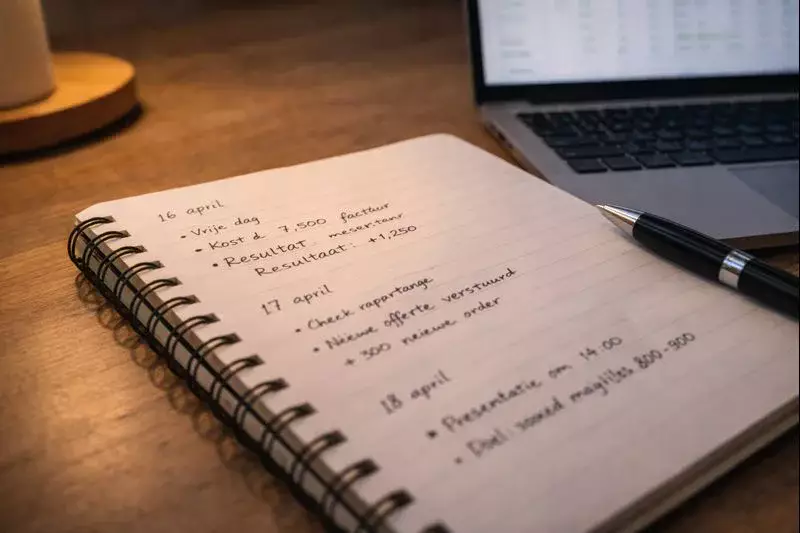 16 april
• Vrije dag
• Kost d 7,500 factuur
• Resultat
Resultaat: +1,250
17 april
• Check rapartange
• Nieuwe offerte verstuurd
+ 300 neiewe order
18 april
• Presentatie om 14:00
• Doel: 800-900